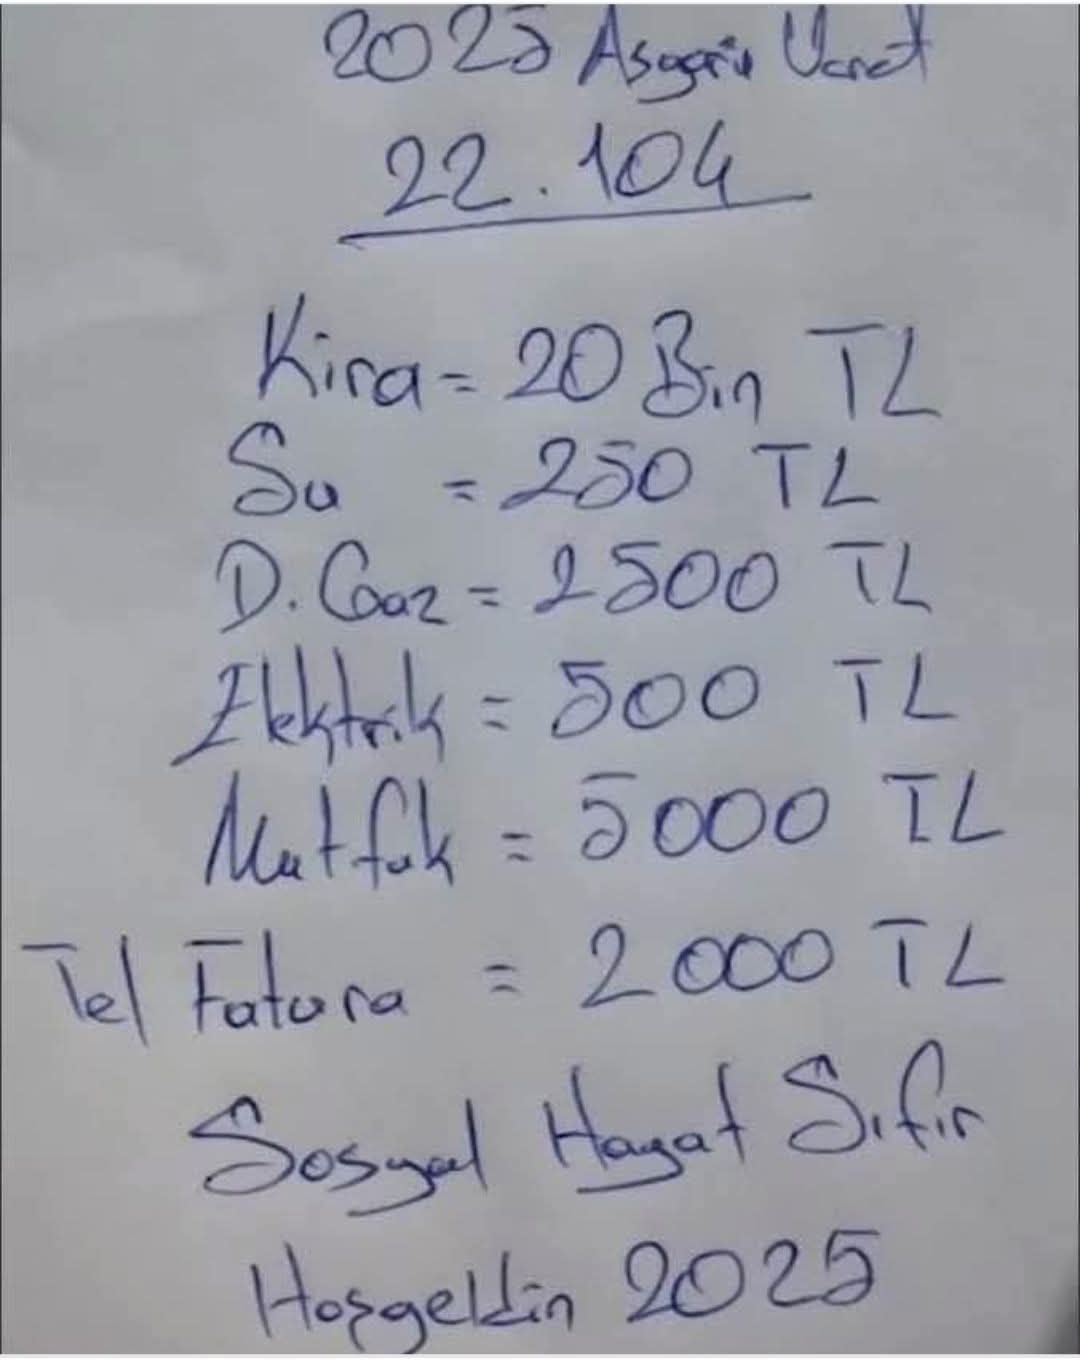 2025 Asgari Ücret
22.104
Kira = 20 Bin TL
Su = 250 TL
D. Gaz = 2500 TL
Elektrik = 500 TL
Mutfak = 5000 TL
Tel Fatura = 2000 TL
Sosyal Hayat Sıfır
Hoşgeldin 2025